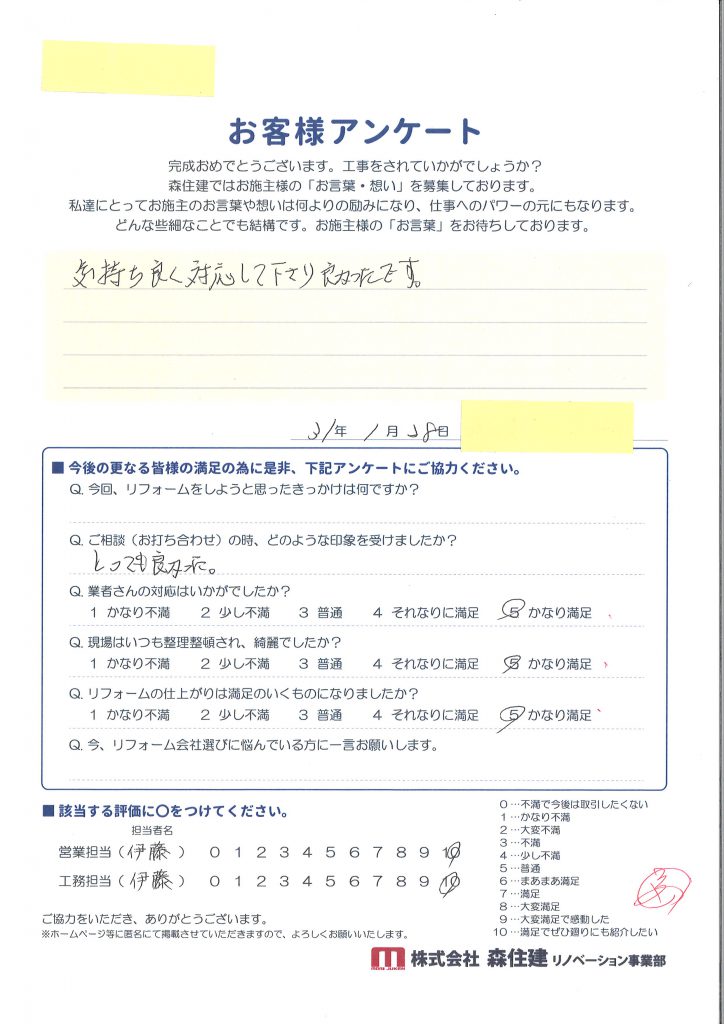 お客様アンケート
完成おめでとうございます。工事をされていかがでしょうか？
森住建ではお施主様の「お言葉・想い」を募集しております。
私達にとってお施主のお言葉や想いは何よりの励みになり、仕事へのパワーの元にもなります。
どんな些細なことでも結構です。お施主様の「お言葉」をお待ちしております。
気持ち良く対応して下さり良かったです。
31年 1月 28日
■ 今後の更なる皆様の満足の為に是非、下記アンケートにご協力ください。
Q. 今回、リフォームをしようと思ったきっかけは何ですか？
Q. ご相談（お打ち合わせ）の時、どのような印象を受けましたか？
とっても良かった。
Q. 業者さんの対応はいかがでしたか？
1 かなり不満 2 少し不満 3 普通 4 それなりに満足 5 かなり満足
Q. 現場はいつも整理整頓され、綺麗でしたか？
1 かなり不満 2 少し不満 3 普通 4 それなりに満足 5 かなり満足
Q. リフォームの仕上がりは満足のいくものになりましたか？
1 かなり不満 2 少し不満 3 普通 4 それなりに満足 5 かなり満足
Q. 今、リフォーム会社選びに悩んでいる方に一言お願いします。
■ 該当する評価に〇をつけてください。
担当者名
営業担当（伊藤） 0 1 2 3 4 5 6 7 8 9 10
工務担当（伊藤） 0 1 2 3 4 5 6 7 8 9 10
0…不満で今後は取引したくない
1…かなり不満
2…大変不満
3…不満
4…少し不満
5…普通
6…まあまあ満足
7…満足
8…大変満足
9…大変満足で感動した
10…満足でぜひ廻りにも紹介したい
ご協力をいただき、ありがとうございます。
※ホームページ等に匿名にて掲載させていただきますので、よろしくお願いいたします。
MORI JUKEN 株式会社 森住建 リノベーション事業部